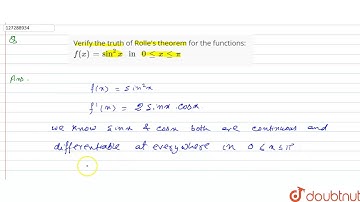 127288934
Q
Verify the truth of Rolle's theorem for the functions:
f(x) = sin²x in 0 ≤ x ≤ π
Ans.
f(x) = sin²x
f'(x) = 2 sinx cosx
we know sinx & cosx both are continuous and
differentable at everywhere in 0 ≤ x ≤ π
doubtnut